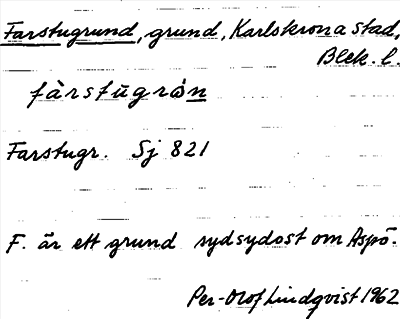 Farstugrund, grund, Karlskrona stad,
Blek. l.
fàrstugrón
Farstugr. Sj 821
F. är ett grund sydsydost om Aspö.
Per-Olof Lindqvist 1962